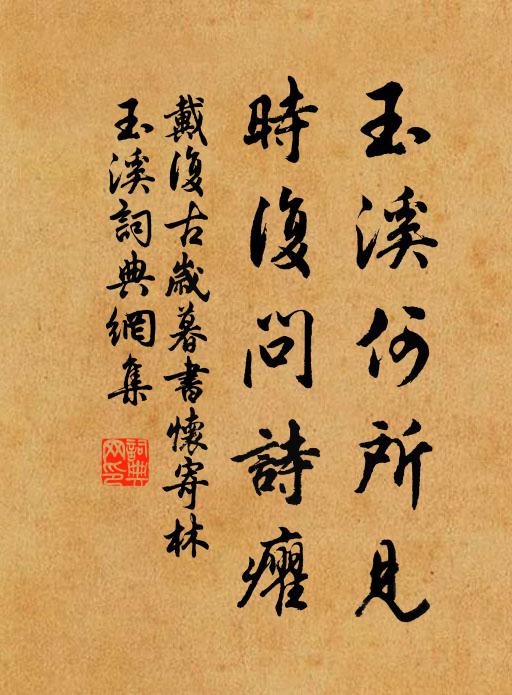 玉溪何所見
時復問詩癯
戴復古歲暮書懷寄林
玉溪詞典網集
詞典網印